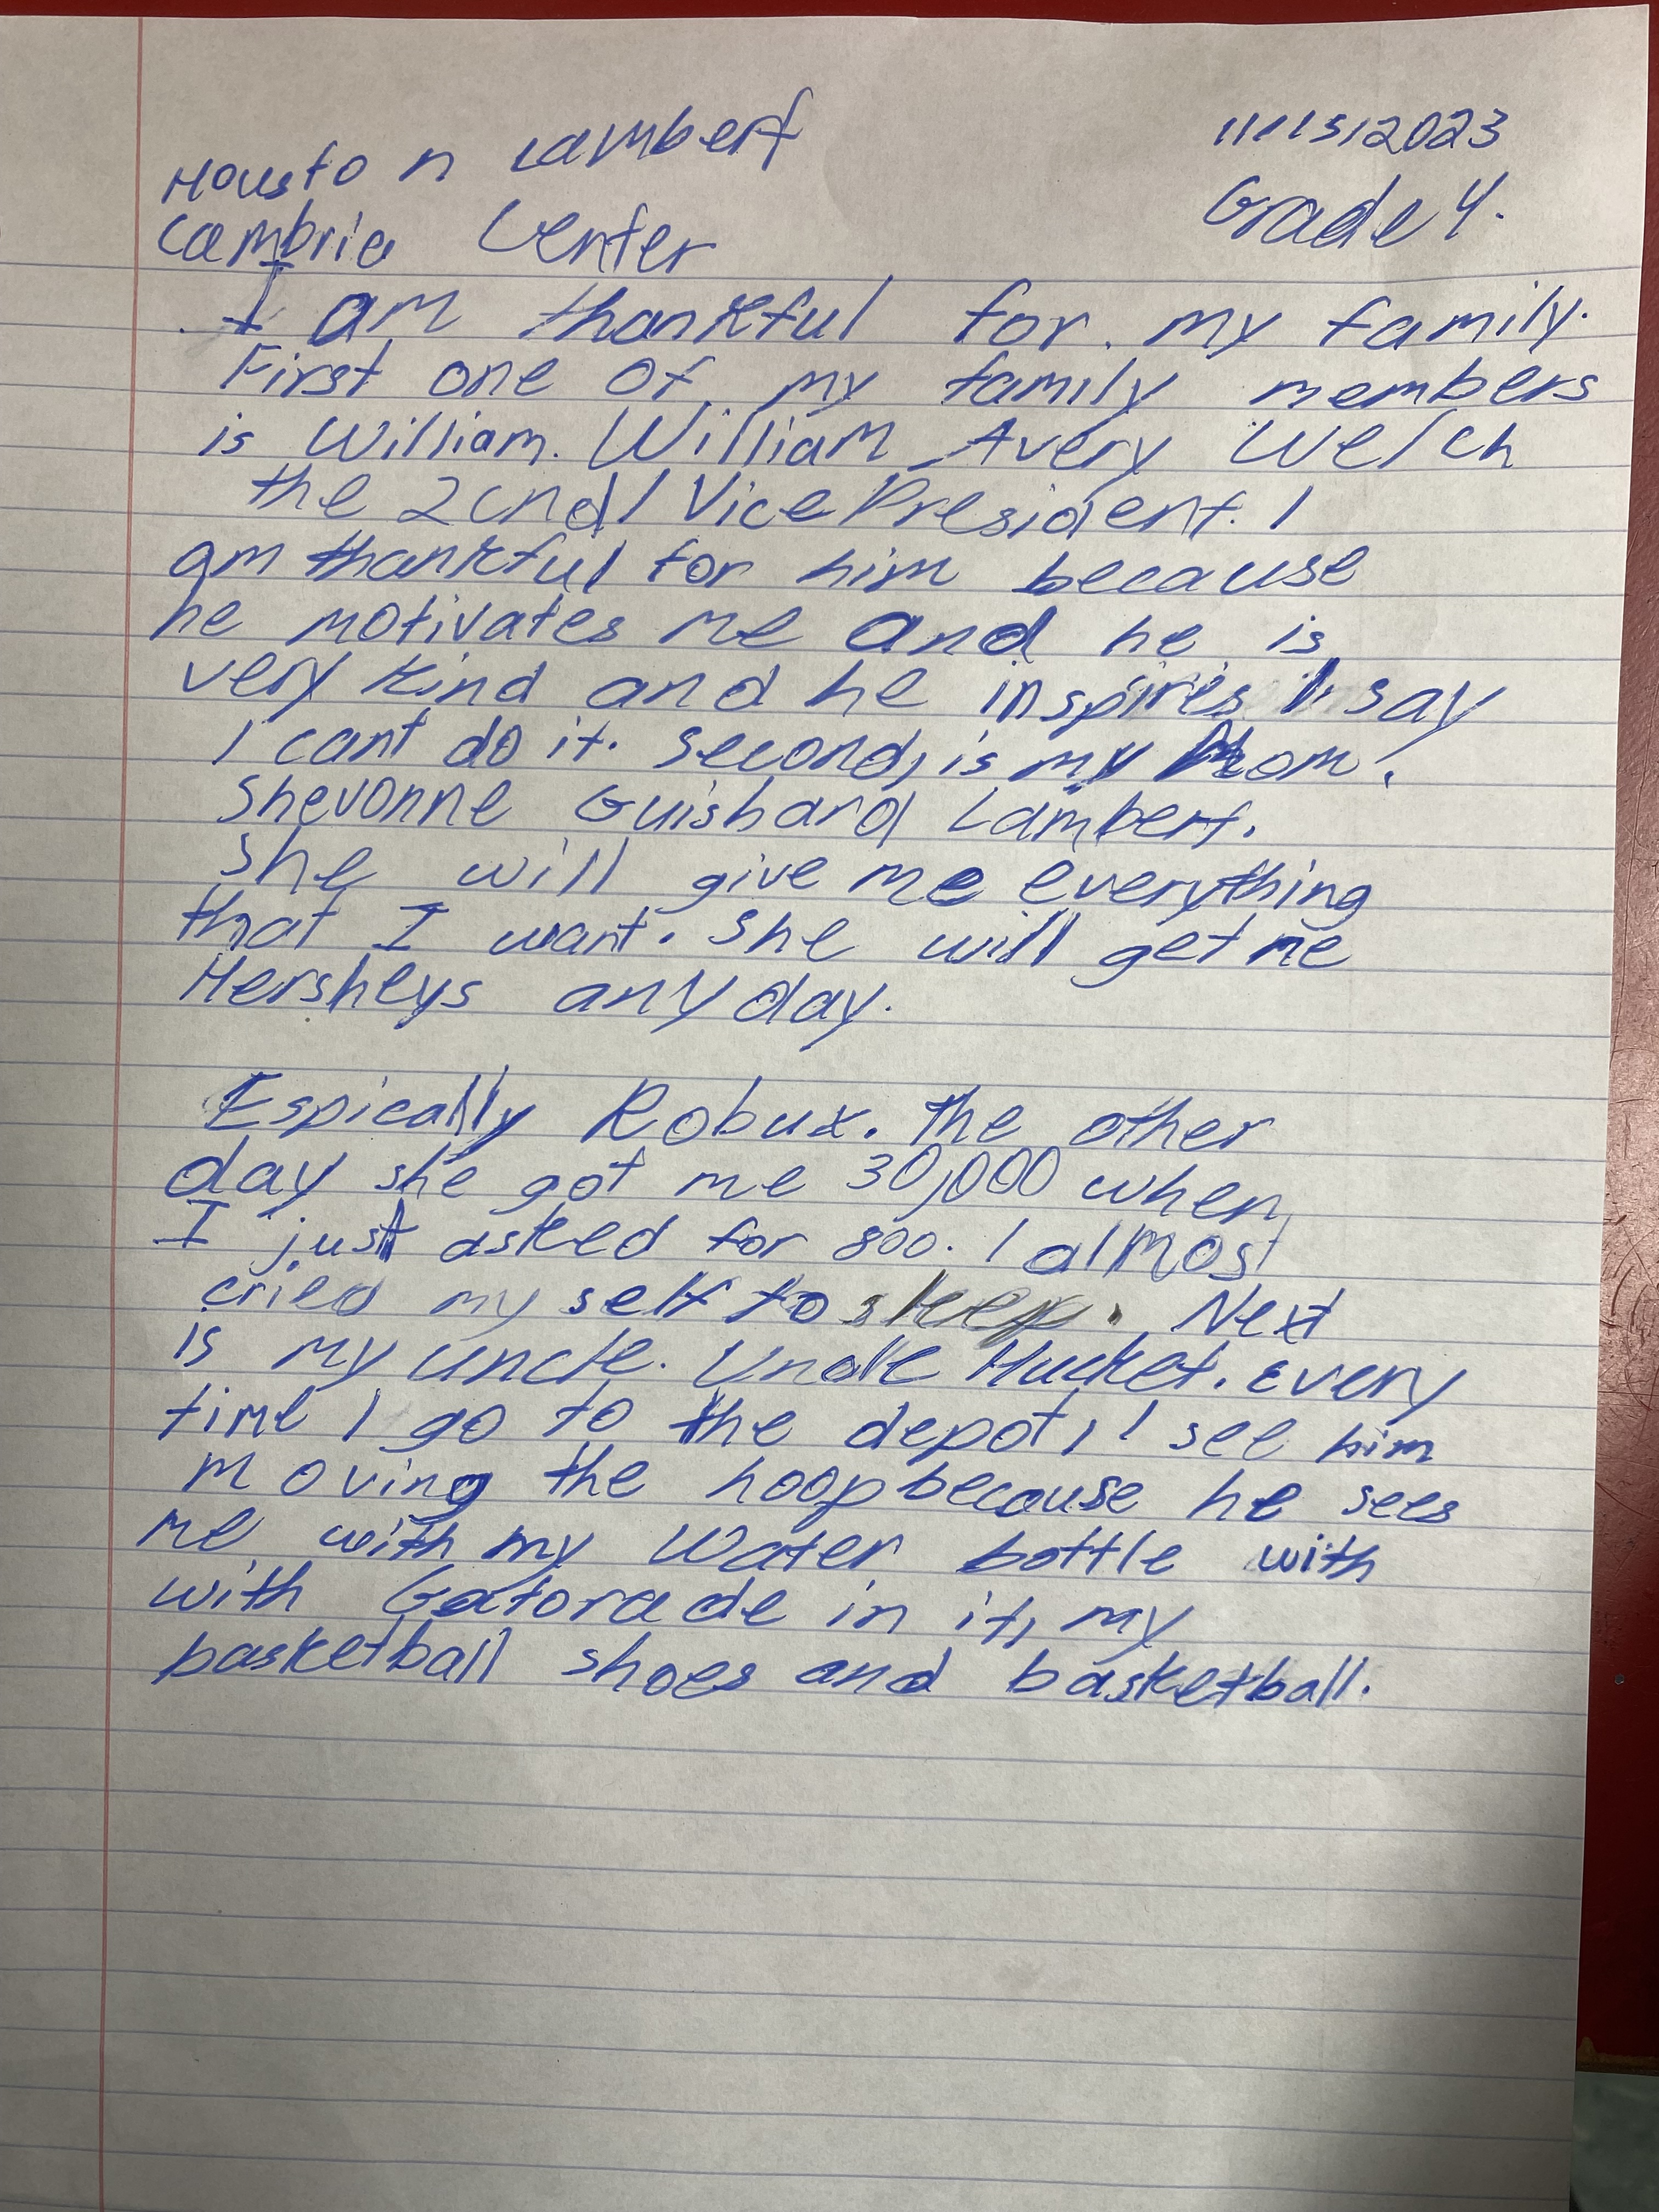 Houston Lambert 11/15/2023
Cambria Center Grade 4.
I am thankful for my family.
First one of my family members
is William. William Avery Welch
the 2cnd Vice President. I
am thankful for him because
he motivates me and he is
very kind and he inspires I say
I cant do it. Second, is my Mom.
Shevonne Guishard Lambert.
She will give me everything
that I want. She will get me
Hersheys any day.
Espically Robux. The other
day she got me 30,000 when
I just asked for 800. I almost
cried my self to sleep. Next
is my uncle. Uncle Hucket. Every
time I go to the depot, I see him
moving the hoop because he sees
me with my water bottle with
with Gatorade in it, my
basketball shoes and basketball.